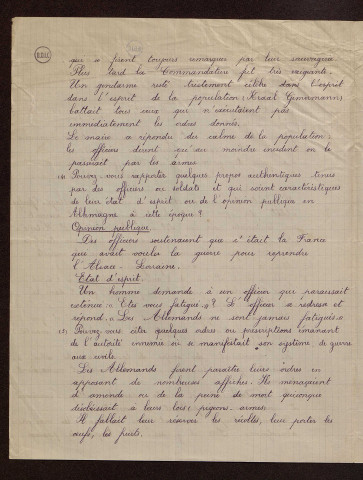 BDIC
qui se firent toujours remarquer par leur
Plus tard la Commandature fit très exigente.
Un gendarme resté tristement célèbre dans l'esprit
dans l'esprit de la population (Kraal Gunnmann)
battait tous ceux qui n'exécutaient pas
immédiatement les ordres donnés.
Le maire a répondu du calme de la population
les officiers dirent que si un moindre incident on le
paraiait par les armes
14) Pouvez vous rapporter quelques propos authentiques tenus
par des officiers ou soldats et qui soient caractéristiques
de leur état d'esprit ou de l'opinion publique en
Allemagne à cette époque ?
Opinion publique.
Des officiers soutenaient que c'était la France
que avait voulu la guerre pour reprendre
l'Alsace - Lorraine.
Etat d'esprit.
Un homme demande à un officier qui paraissait
exténué "Etes vous fatigué" ? L'officier se redresse et
répond "Les Allemands ne sont jamais fatigués"
15) Pouvez vous citer quelques ordres ou prescriptions émanant
de l'autorité ennemie où se manifestait son système de guerre
aux civils.
Les Allemands firent paraître leurs ordres en
apposant de nombreuses affiches. Ils menaçaient
d'amende ou de la peine de mort quiconque
désobéissait à leurs lois: pigeons - armes.
Il fallait leur réserver les récoltes, leur porter les
œufs, les fruits.